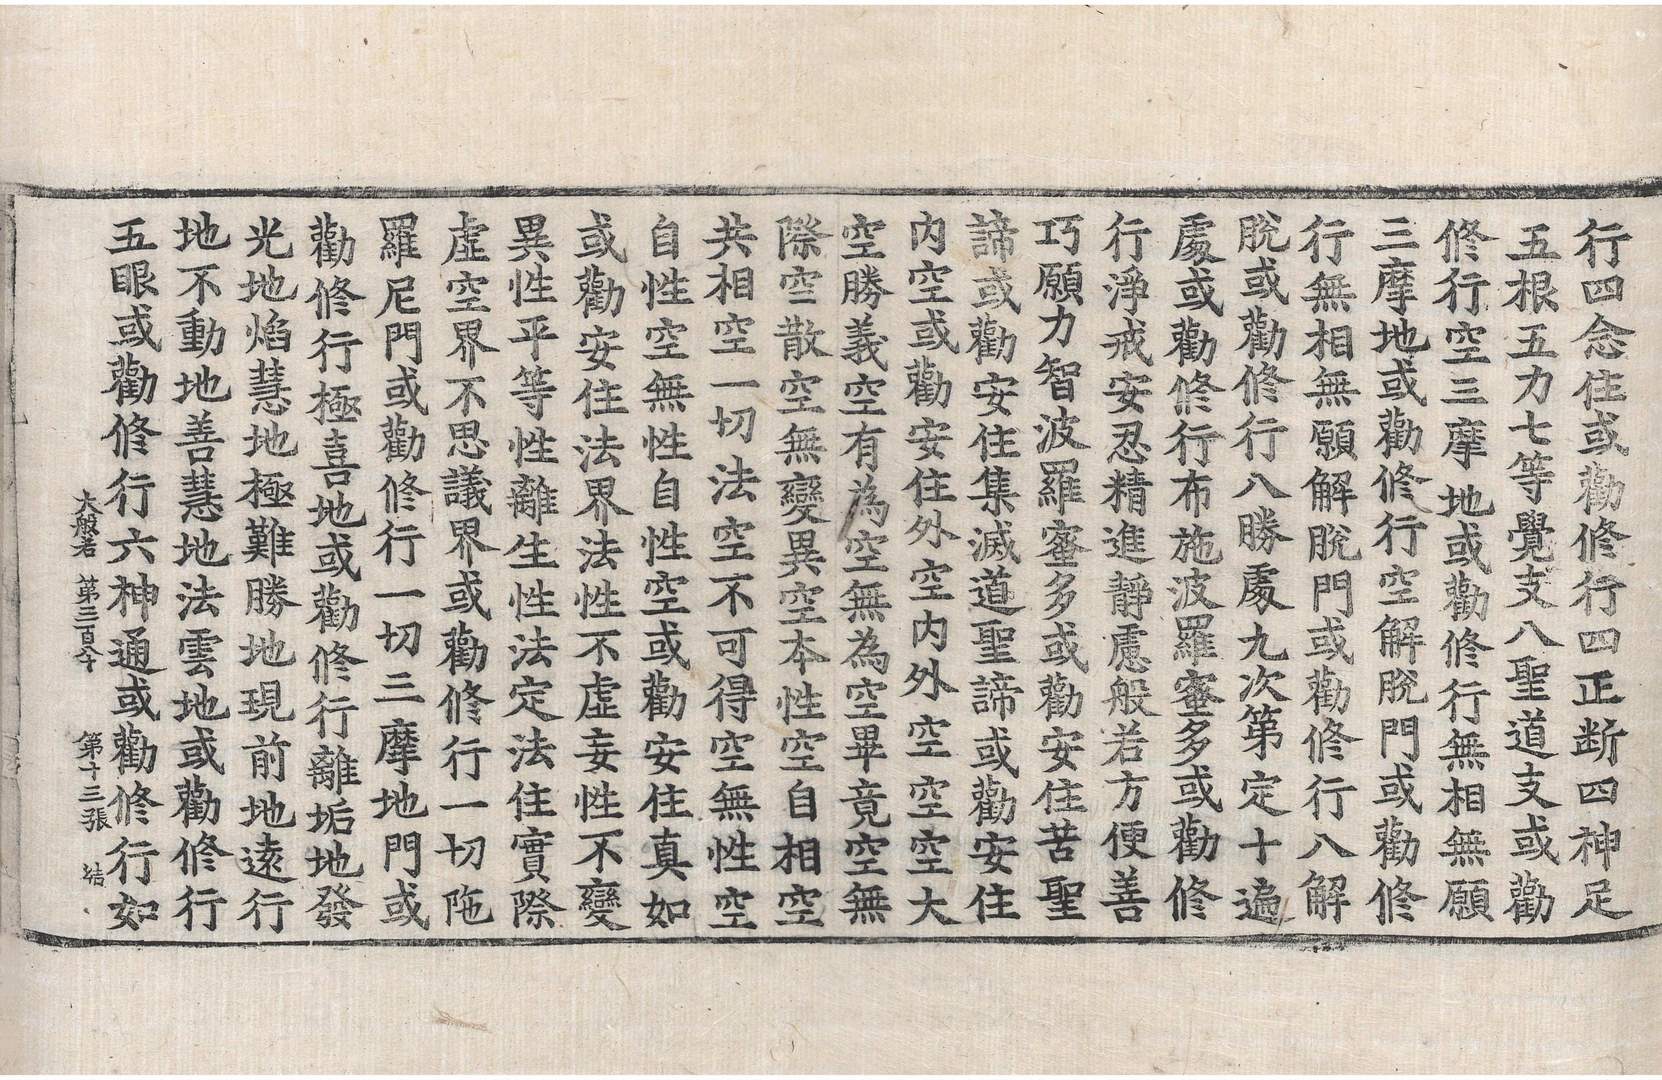 行四念住或勸修行四正断四神足
五根五力七等覺支八聖道支或勸
修行空三摩地或勸修行無相無願
三摩地或勸修行空解脫門或勸修
行無相無願解脫門或勸修行八解
脫或勸修行八勝處九次第定十遍
處或勸修行布施波羅蜜多或勸修
行淨戒安忍精進靜慮般若方便善
巧願力智波羅蜜多或勸安住苦聖
諦或勸安住集滅道聖諦或勸安住
內空或勸安住外空內外空空空大
空勝義空有為空無為空畢竟空無
際空散空無變異空本性空自相空
共相空一切法空不可得空無性空
自性空無性自性空或勸安住真如
或勸安住法界法性不虛妄性不變
異性平等性離生性法定法住實際
虛空界不思議界或勸修行一切陁
羅尼門或勸修行一切三摩地門或
勸修行極喜地或勸修行離垢地發
光地焰慧地極難勝地現前地遠行
地不動地善慧地法雲地或勸修行
五眼或勸修行六神通或勸修行如
大般若 第三百 第十三張 結